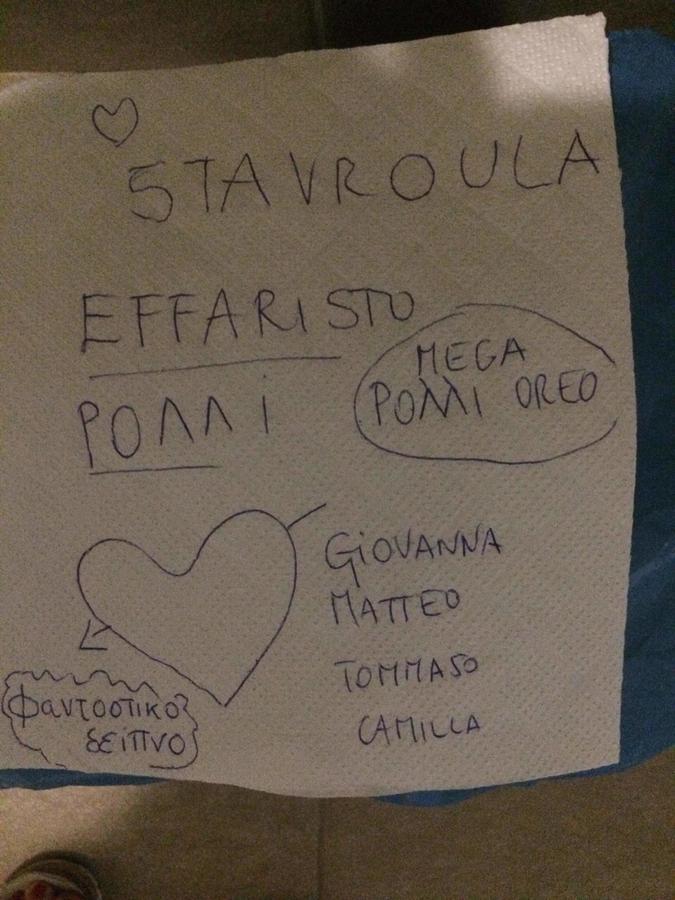 STAVROULA
EFFARISTO
POΛΛI
MEGA
POΛΛI OREO
GIOVANNA
MATTEO
TOMMASO
CAMILLA
Φανταστικο
δειπνο